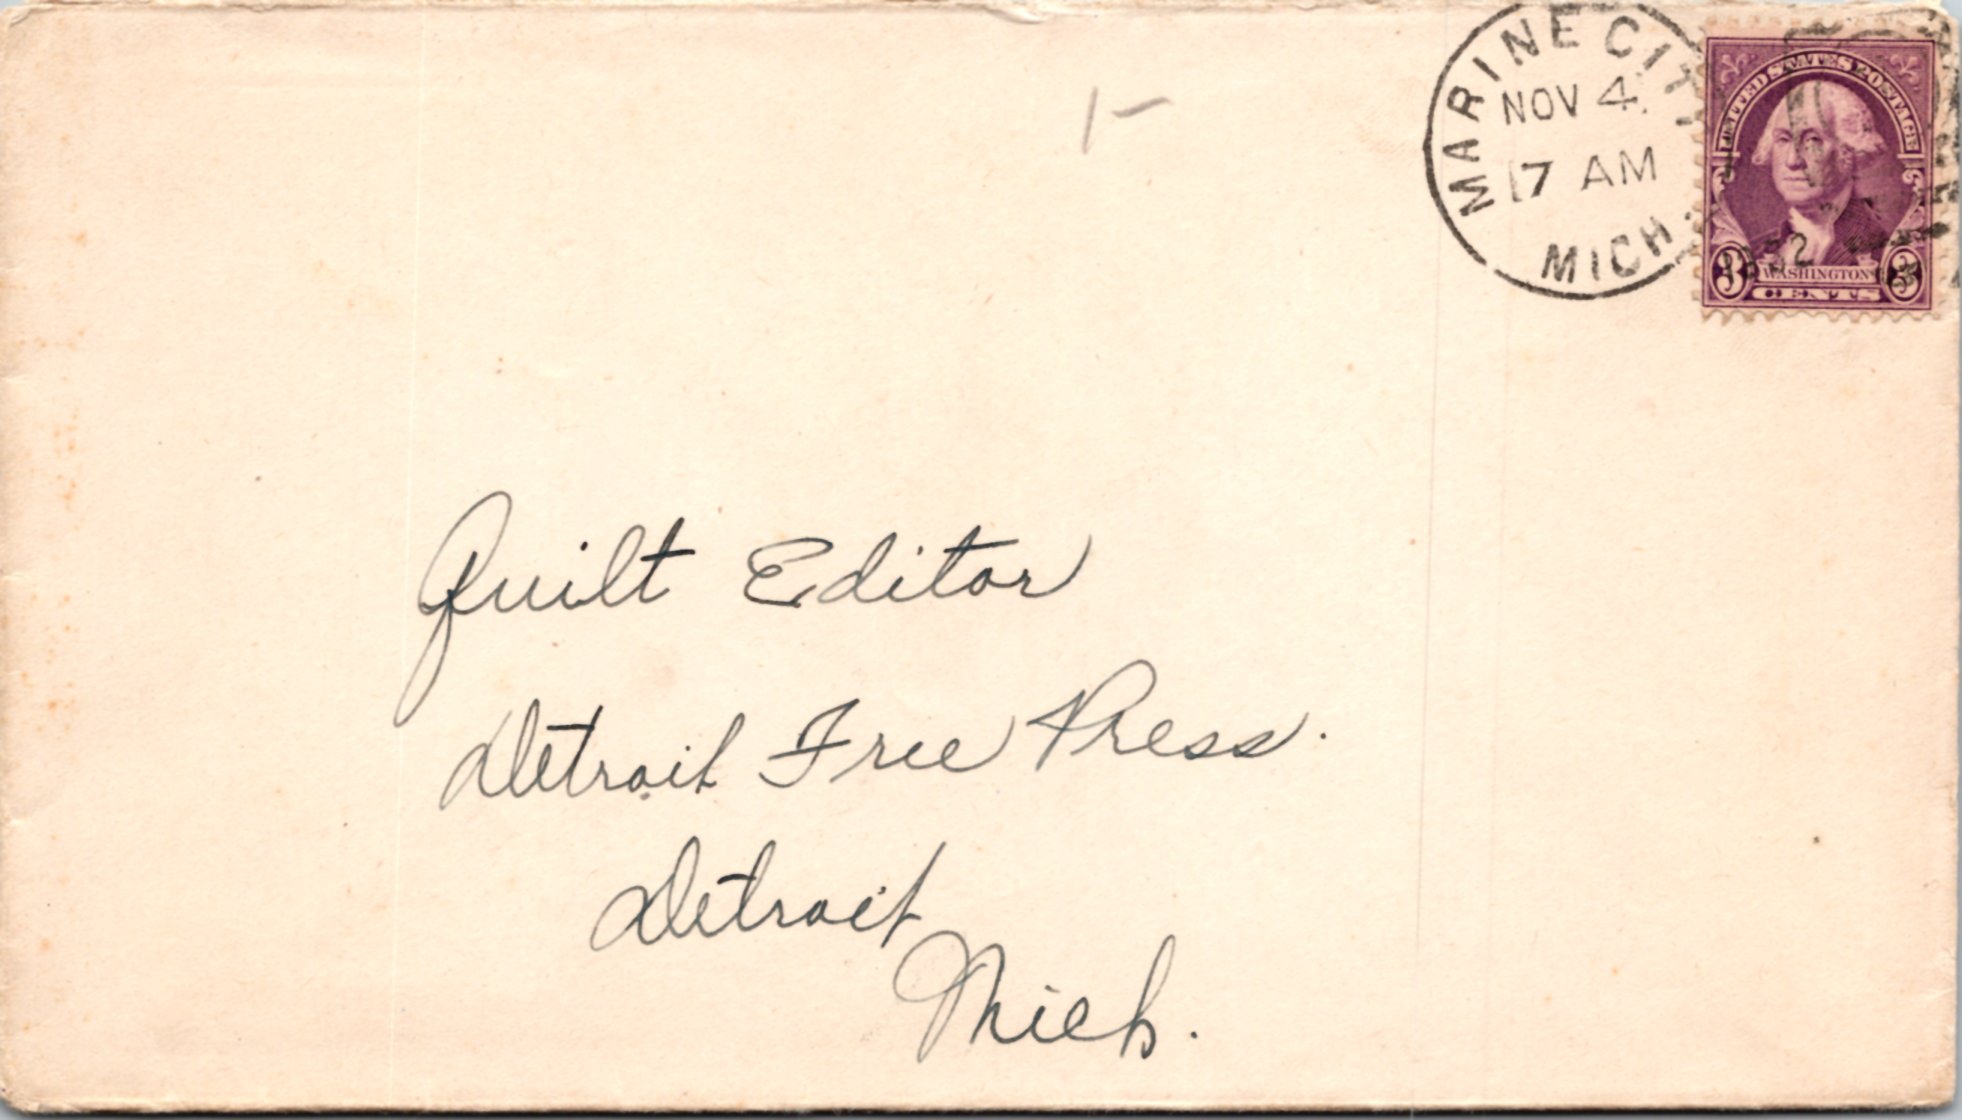 MARINE CITY
NOV 4.
7 AM
1932
MICH.
UNITED STATES POSTAGE
3 WASHINGTON 3
CENTS
Quilt Editor
Detroit Free Press.
Detroit
Mich.